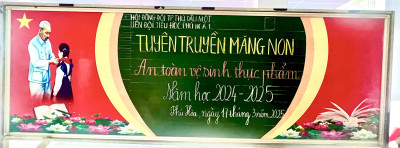 HỘI ĐỒNG ĐỘI TP THỦ DẦU MỘT
LIÊN ĐỘI TIỂU HỌC PHÚ HÒA 1
TUYÊN TRUYỀN MĂNG NON
An toàn vệ sinh thực phẩm
Năm học 2024-2025
Phú Hòa, ngày 17 tháng 3 năm 2025